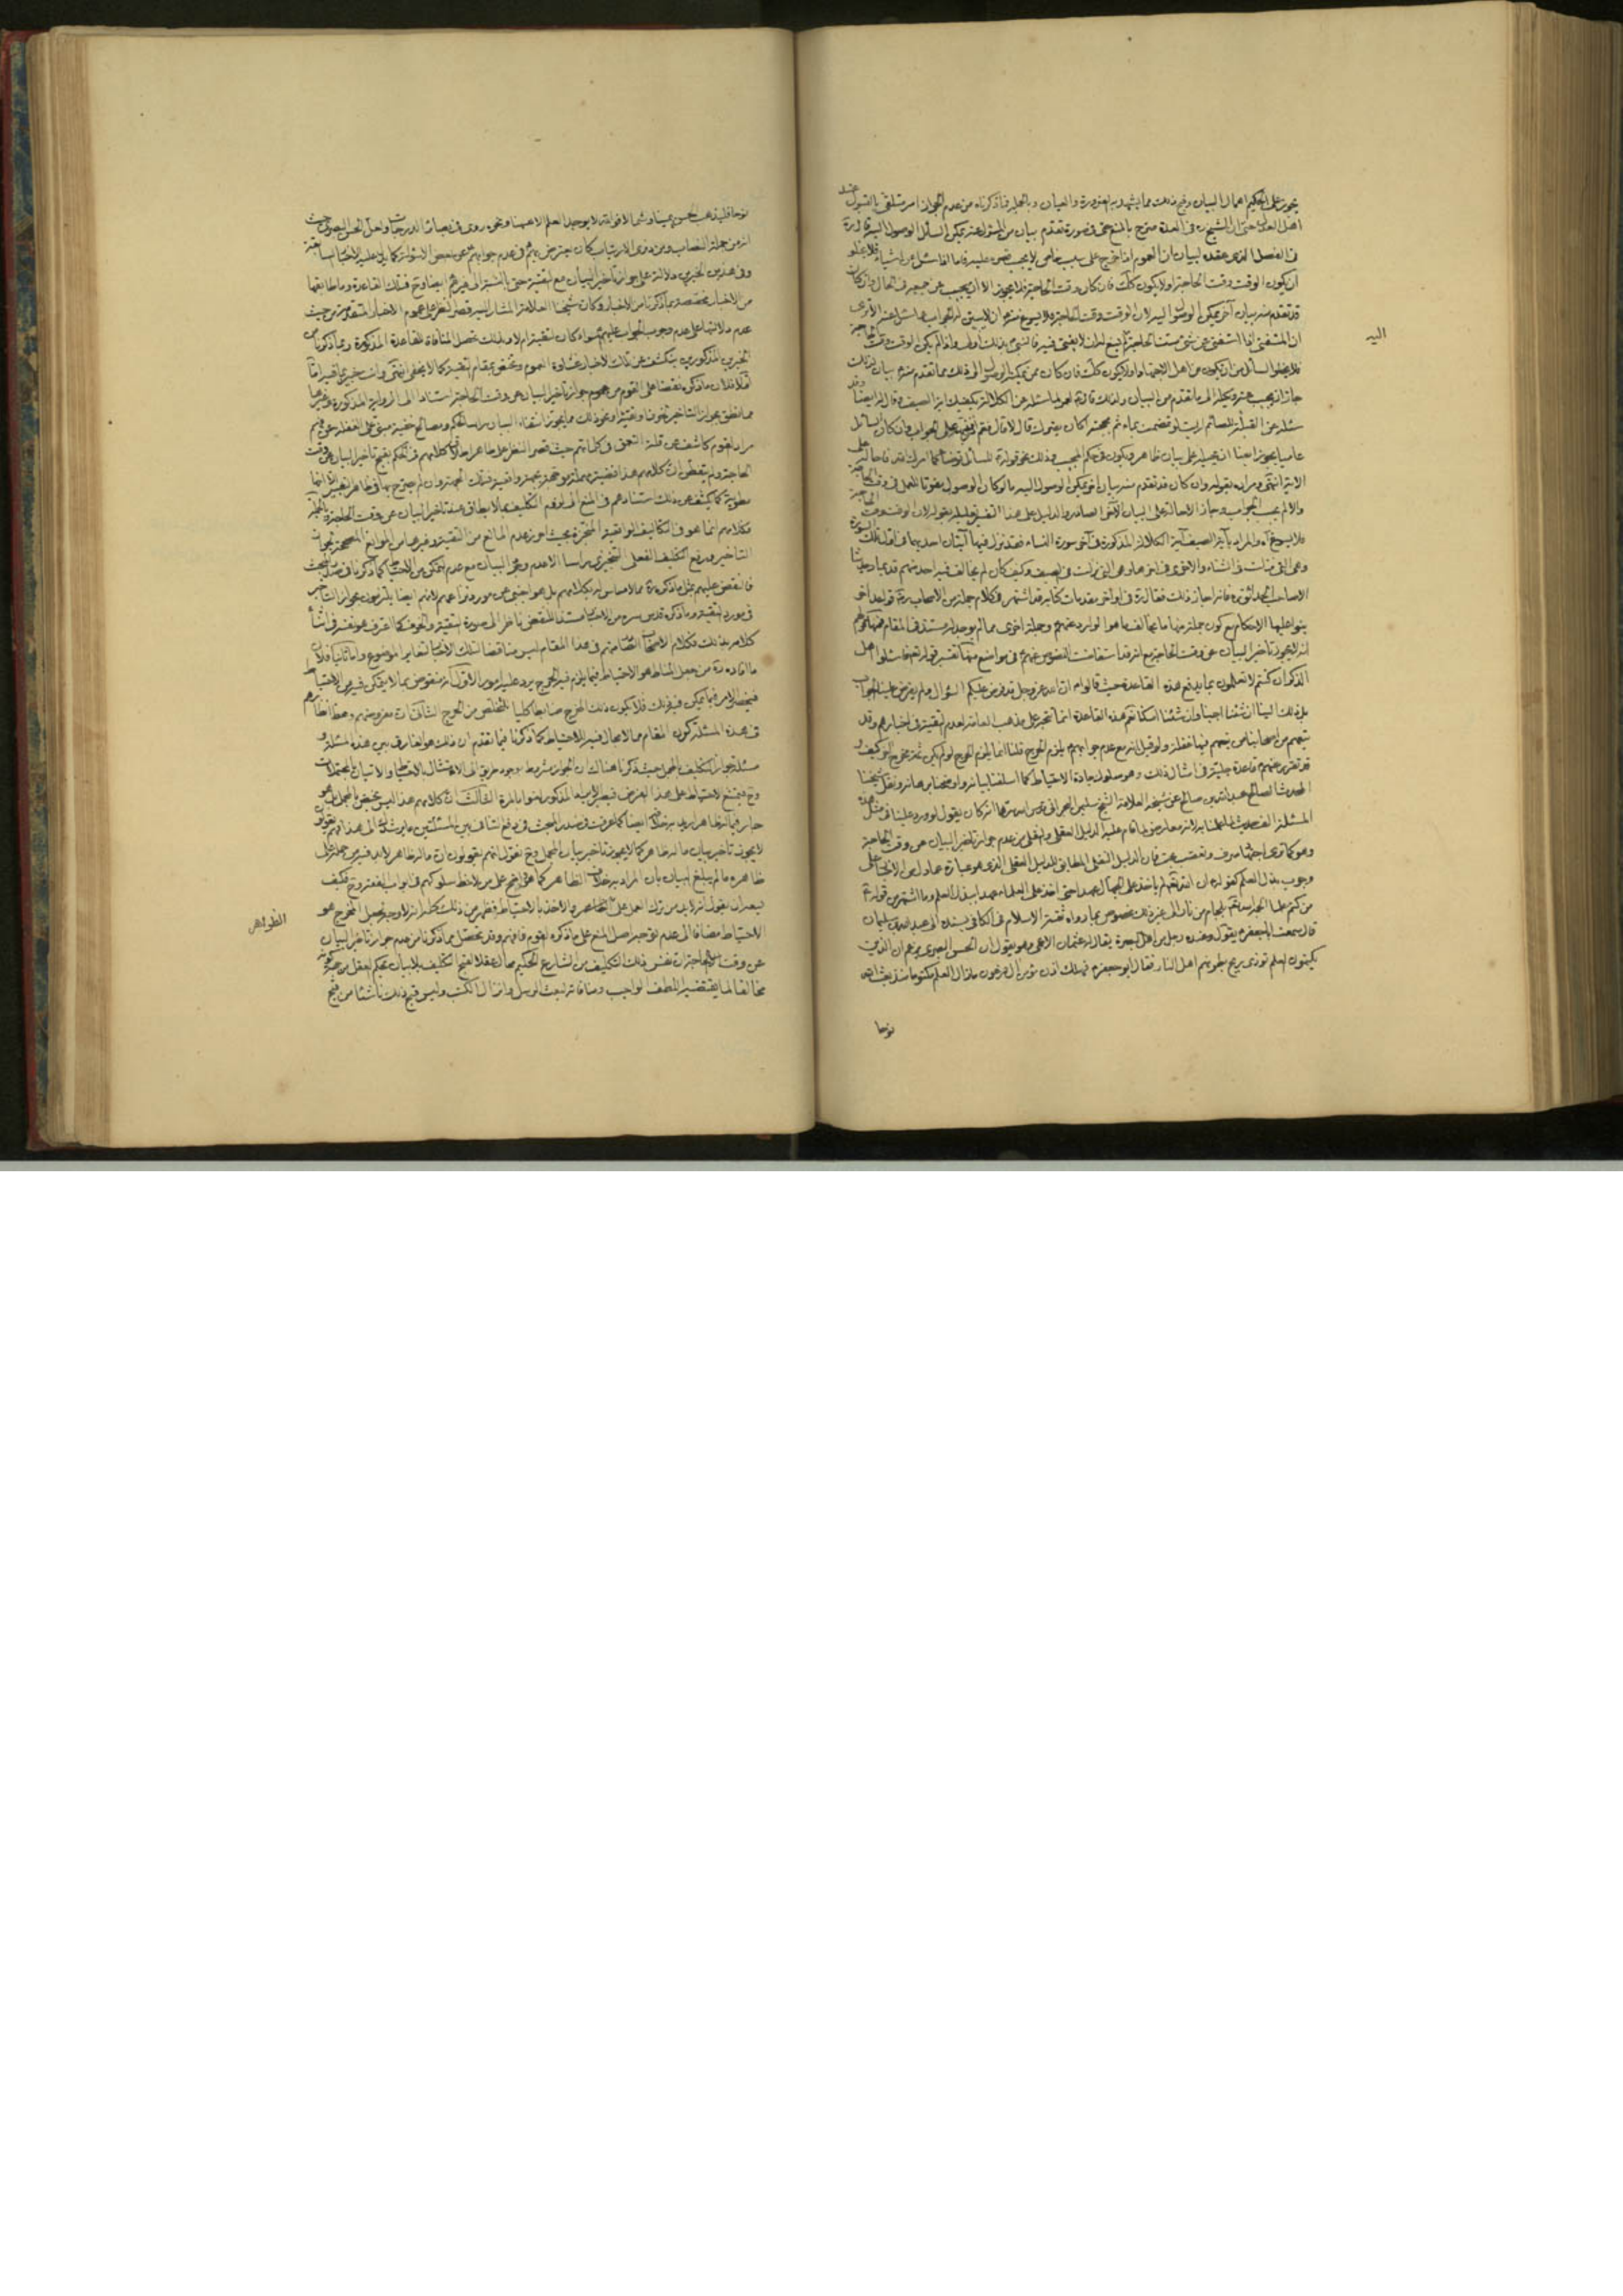 يجوز على الحكيم اهمال البيان وقبح ذلك مما يشهد به الضرورة والعيان وبالجملة فما ذكرناه من عدم الجواز امر متلقى بالقبول عند
اهل العدل حتى ان الشيخ ره في العدة صرح بالمنع حتى في صورة تقدم بيان من المسئول عنه يمكن السائل الوصول اليه قال ره
في الفصل الذي عقده لبيان ان العموم اذا خرج على سبب خاص لا يجب قصره عليه فاما اذا سئل عن اشياء فلا يخلو
ان يكون الوقت وقت الحاجة او لا يكون كك فان كان وقت الحاجة فلا يجوز الا ان يجيب عن جميعه في الحال وان كان
قد تقدم منه بيان آخر يمكن الوصول اليه لان الوقت وقت الحاجة فلا يسوغ
ان المستفتي اذا استفتى عن شيء مست الحاجة
فلا يخلو السائل من ان يكون من اهل الاجتهاد او لا يكون كك فان كان ممن يمكنه الوصول الى ذلك مما تقدم منه بيان
جاز ان يجيب عنه ويحيله الى ما تقدم من البيان ولذلك قال لعمر لما سئله عن الكلالة يكفيك آية الصيف وقال له ايضا وقد
سئله عن القبلة للصائم ارايت لو تمضمضت بماء ثم مججته اكان يضرك قال لا قال ففيم اذا فنبهه على الجواب وان كان السائل
عاميا يجوز ايضا ان يحيله على بيان ظاهر ويكون في حكم المجيب وذلك نحو قوله للسائل توضأ كما امرك الله فاحاله على
الآية انتهى ومراده بقوله وان كان قد تقدم منه بيان آخر يمكن الوصول اليه ما لو كان الوصول مفوتا للعمل في وقت الحاجة
والا لم يجب الجواب وجاز الاحالة على البيان الآخر
فلا يسوغ آه والمراد بآية الصيف آية الكلالة المذكورة في آخر سورة النساء فقد نزل فيها آيتان احديهما في اول تلك السورة
وهي التي نزلت في الشتاء والاخرى في آخرها وهي التي نزلت في الصيف وكيف كان لم يخالف فيه احد منهم قديما وحديثا
الا صاحب الحدائق ره فانه اجاز ذلك فقال ره في اواخر مقدمات كتابه قد اشتهر في كلام جملة من الاصحاب ره قواعد اخر
بنوا عليها الاحكام مع كون جملة منها مما يخالف ما هو الوارد عنهم وجملة اخرى مما لم يوجد له مستند في المقام فمنها قولهم
انه لا يجوز تأخير البيان عن وقت الحاجة مع انه قد استفاضت النصوص عنهم في مواضع منها تفسير قوله تعالى فاسئلوا اهل
الذكر ان كنتم لا تعلمون بما يدفع هذه القاعدة حيث قالوا ان الله عز وجل قد فرض عليكم السؤال ولم يفرض علينا الجواب
بل ذلك الينا ان شئنا اجبنا وان شئنا امسكنا نعم هذه القاعدة انما تتجه على مذهب العامة لعدم التقية في اخبارهم وقد
تبعهم من اصحابنا من تبعهم فيها غفلة ولو قيل انه مع عدم جوابهم يلزم الحرج قلنا انما يلزم الحرج لو لم يكن ثمة مخرج آخر كيف و
قد تقرر عنهم قاعدة جليلة في امثال ذلك وهو سلوك جادة الاحتياط كما اسلفنا بيانه واوضحنا برهانه ونقل شيخنا
المحدث الصالح عبد الله بن صالح عن شيخه العلامة الشيخ سليمان البحراني قدس الله سرهما انه كان يقول لو ورد علينا في مثل هذه
المسئلة الف حديث لما عملنا به لانه معارض لما قام عليه الدليل العقلي والنقلي من عدم جواز تأخير البيان عن وقت الحاجة
وهو كما ترى اجتهاد صرف وتعصب بحت فان الدليل النقلي المطابق للدليل العقلي الذي هو عبارة عما دل من الاخبار على
وجوب بذل العلم كقوله ان الله تعالى لم يأخذ على الجهال عهدا حتى اخذ على العلماء عهدا ببذل العلم وما اشتهر من قوله
من كتم علما الجمه الله تعالى بلجام من نار الى غير ذلك مخصوص بما رواه ثقة الاسلام في الكافي بسنده الى عبد الله بن سليمان
قال سمعت ابا جعفر يقول وعنده رجل من اهل البصرة يقال له عثمان الاعمى وهو يقول ان الحسن البصري يزعم ان الذين
يكتمون العلم تؤذي ريح بطونهم اهل النار فقال ابو جعفر فهلك اذن مؤمن آل فرعون ما زال العلم مكتوما منذ بعث الله
نوحا
اليه
نوحا فليذهب الحسن يمينا وشمالا فوالله لا يوجد العلم الا ههنا ونحوه روى في بصائر الدرجات ولعل الحسن البصري حيث
انه من جملة النصاب ومن ذوي الارتياب كان يعترض بهم في عدم جوابهم عن بعض الاسئلة كما يدل عليه الاخبار السابقة
وفي هذين الخبرين دلالة على جواز تأخير البيان مع التقية حتى بالنسبة الى غيرهم ايضا وح فتلك القاعدة وما طابقها
من الاخبار مخصصة بما ذكرنا من الاخبار وكان شيخنا العلامة المشار اليه قصر النظر على عموم الاخبار المتقدمة من حيث
عدم دلالتها على عدم وجوب الجواب عليهم سواء كان لتقية ام لا وبذلك تحصل المنافاة للقاعدة المذكورة وبما ذكرنا من
الخبرين المذكورين ينكشف عن تلك الاخبار غشاوة العموم وتختص بمقام التقية كما لا يخفى انتهى وانت خبير بما فيه اما
اولا فلان ما ذكره نقضا على القوم من عموم جواز تأخير البيان عن وقت الحاجة استنادا الى الرواية المذكورة وغيرها
مما نطق بجواز التأخير لخوف او تقية او نحو ذلك مما يجوز انتفاء البيان رأسا لحكم ومصالح خفية مبني على الغفلة عن فهم
مراد القوم كاشف عن قلة التعمق في كلماتهم حيث قصر النظر على ظاهر اطلاق كلامهم في الحكم بقبح تأخير البيان عن وقت
الحاجة ولم يتفطن ان كلامهم هذا قضية
مطوية كما يكشف عن ذلك استنادهم في المنع الى لزوم التكليف بما لا يطاق عند تأخير البيان عن وقت الحاجة وبالجملة
فكلامهم انما هو في التكاليف الواقعية المنجزة بحيث احرز عدم المانع من التقية وغيرها من الموانع المصححة لجواز
التأخير ورفع التكليف الفعلي التنجيزي رأسا لا عدم وقوع البيان مع عدم التمكن من الاحتياط كما ذكرنا في صدر المبحث
فالنقض عليهم بمثل ما ذكره ره مما لا مساس له بكلامهم بل هو اجنبي عن مورد مرامهم لانهم ايضا يلتزمون بجواز التأخير
في مورد التقية وما ذكره قدس سره من الاخبار مستندا للنقض ناظر الى صورة التقية والخوف كما اعترف هو نفسه في اثناء
كلامه بذلك فكلام الاصحاب
ما افاده ره من جعل المناط هو الاحتياط فيما يلزم فيه الحرج يرد عليه امور الاول انه منقوض بما لا يتمكن فيه من الاحتياط
فيختص الامر فيما يمكن فيه ذلك فلا يكون ذلك المخرج ضابطا كليا للتخلص من الحرج الثاني ان مفروضهم ومحط انظارهم
في هذه المسئلة كون المقام مما لا مجال فيه للاحتياط كما ذكرنا فيما تقدم ان ذلك هو الفارق بين هذه المسئلة و
مسئلة جواز التكليف بالمجمل حيث ذكرنا هناك ان الجواز مشروط بوجود طريق الى الامتثال بالاحتياط والاتيان بالمحتملات
الثالث ان كلامهم هذا ليس يختص بالمجمل بل هو
جار فيما له ظاهر اريد به خلافه ايضا كما عرفت في صدر المبحث في دفع التنافي بين المسئلتين ما يرشدك الى هذا
لا يجوز تأخير بيان ما له ظاهر كما لا يجوز تأخير بيان المجمل وح نقول انهم يقولون ان ما له ظاهر لا بد فيه من حمله على
ظاهره ما لم يبلغ البيان بان المراد به خلاف الظاهر كما هو واضح على من لاحظ سلوكهم في ابواب الفقه وح فكيف
يسعه ان يقول انه لا بد من ترك العمل على الظاهر والاخذ بالاحتياط فظهر من ذلك كله انه لا وجه لجعل المخرج هو
الاحتياط مضافا الى عدم توجه اصل المنع على ما ذكره القوم فافهم وقد تحصل مما ذكرنا من عدم جواز تأخير البيان
عن وقت الحاجة ان نفس ذلك التكليف من الشارع الحكيم محال عقلا لقبح التكليف بلا بيان بحكم العقل
مخالفا لما يقتضيه اللطف الواجب ومنافاته لبعث الرسل وانزال الكتب وليس قبح ذلك ناشئا من قبح
الظواهر